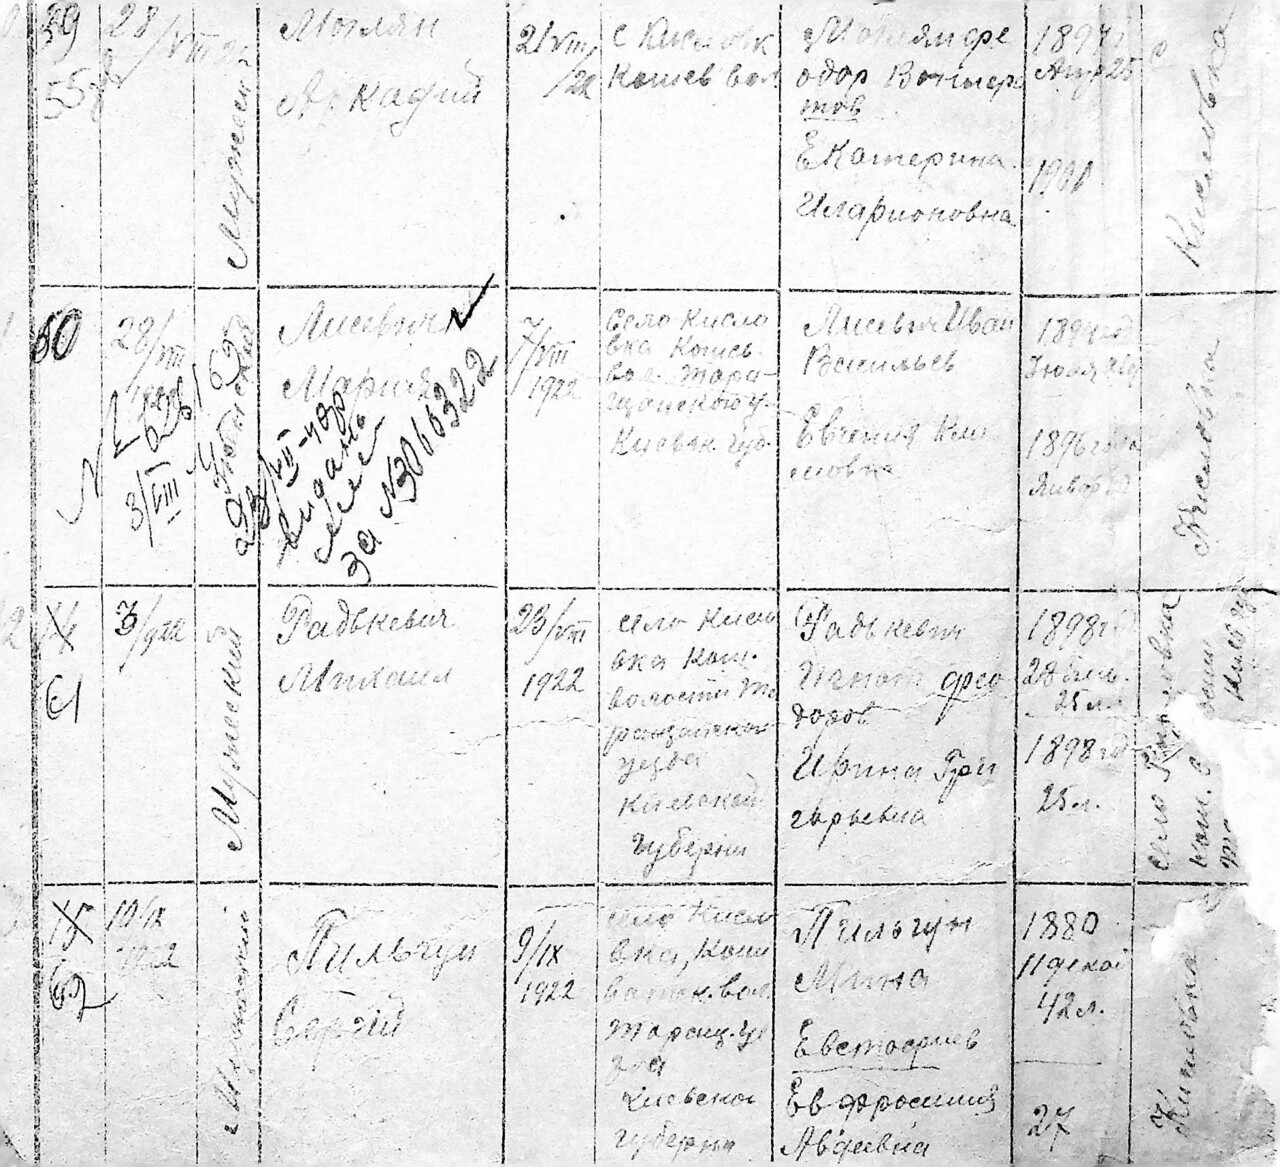 59
28/VIII 22
Мужеск
Моглян
Аркадий
21/VIII/22
с Кисловк
Кошев вол.
Моглян Фе
одор
Екатерина
Иларионовна
1897г
Апр 25
1900
Кисловка
60
28/VIII
1922
3/VIII
Лисевич
Мария
23/VII-49р
видано
за №3066322
7/VIII
1922
Село Кисло
вка Кошев.
вол. Тара-
щанского у.
Киевск. губ.
Лисевич Иван
Васильев
Евгения Кли
1894 год
1896 года
Январ
Кисловка
61
3/922
Мужеский
Радькевич
Михаил
23/VIII
1922
село Кисло
вка Кош.
волости Та
ращанског
уезда
Киевской
губерни
Радькевич
Игнат Фео
доров
Ирина Гри
горьевна
1898г
25 л.
1898 год
25 л.
село Кисловка
кош. в
15
62
10/IX
1922
Мужеский
Пильгун
Сергій
9/IX
1922
село Кисло
вка, Кош
ватск. вол.
Таращ. уе
зда
Киевско
губерни
Пильгун
Мина
Евстафиев
Евфросиния
Авдеевна
1880
11 декаб
42 л.
27
Кисловка